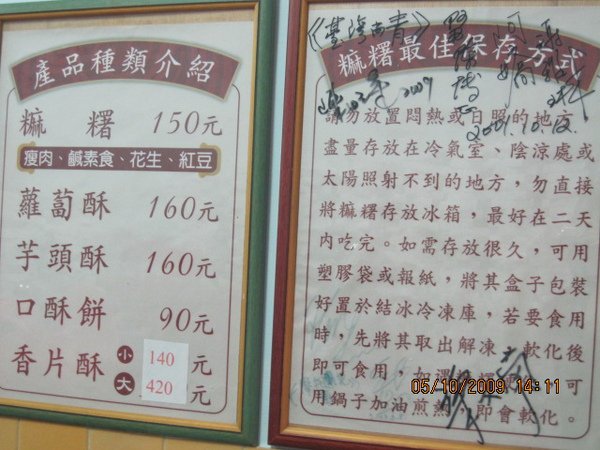 產品種類介紹
麻糬 150元
瘦肉、鹹素食、花生、紅豆
蘿蔔酥 160元
芋頭酥 160元
口酥餅 90元
香片酥 小 140元
大 420元
麻糬最佳保存方式
請勿放置悶熱或日照的地方
盡量存放在冷氣室、陰涼處或
太陽照射不到的地方，勿直接
將麻糬存放冰箱，最好在二天
內吃完。如需存放很久，可用
塑膠袋或報紙，將其盒子包裝
好置於結冰冷凍庫，若要食用
時，先將其取出解凍，軟化後
即可食用，如 可
用鍋子加油煎熱，即會軟化。
2009
2009.10.12
05/10/2009 14:11